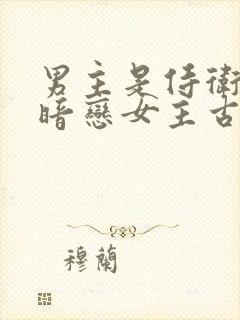 男主是侍衛
暗戀女主古
穆蘭